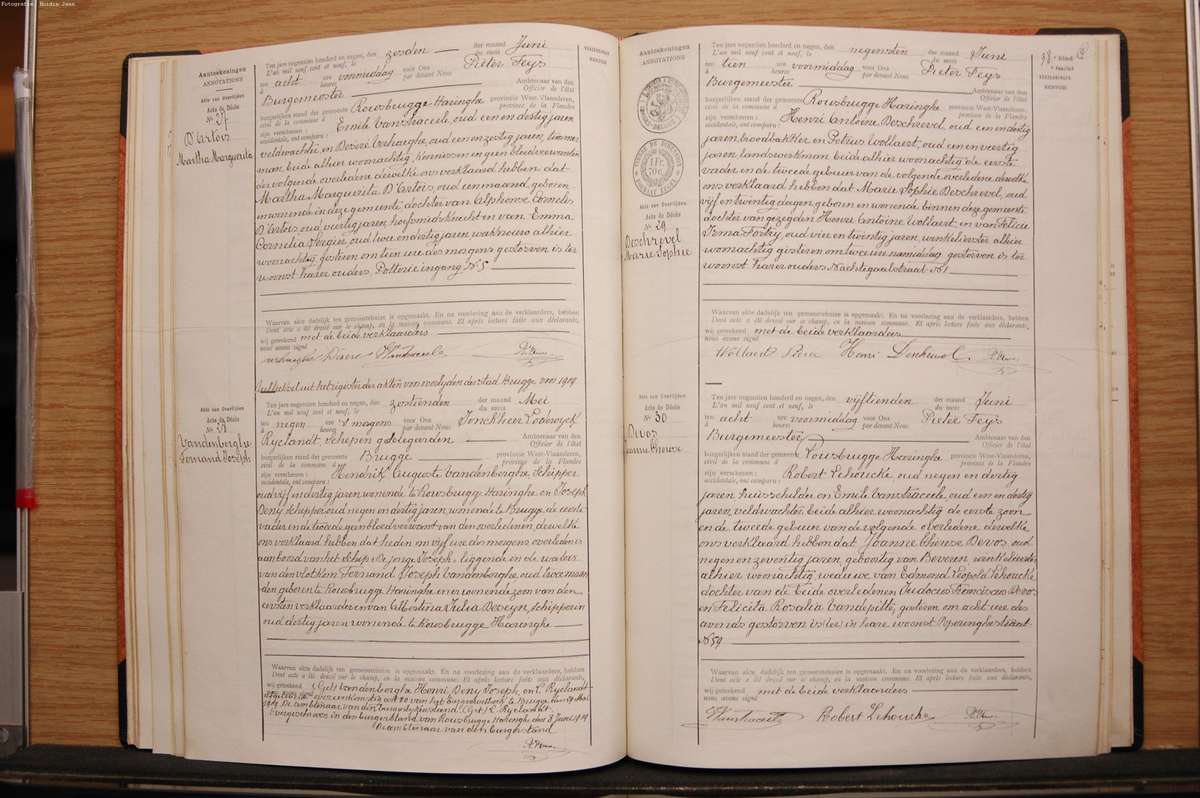 Fotografie: Buidin Jean
Aanteekeningen
ANNOTATIONS
Akte van Overlijden
Acte de Décès
N° 27
D'Artois
Martha Marguerita
Ten jare negentien honderd en negen, den zesden der maand Juni
L'an mil neuf cent et neuf, le du mois
ten acht ure voormiddag voor Ons Pieter Feys
à heures par devant Nous
Burgemeester Ambtenaar van den
Officier de l'état
burgerlijken stand der gemeente Rousbrugge Haringhe provincie West-Vlaanderen,
civil de la commune d province de la Flandre
zijn verschenen : Emile Vanstraceele, oud een en dertig jaren,
occidentale, ont comparu :
veldwachter en Desiré Verhaeghe, oud een en zestig jaren, timmer
man, beide alhier woonachtig, kennissen en geen bloedverwanten
der volgende overledene dewelke ons verklaard hebben dat
Martha Marguerita D'Artois, oud eene maand, geboren
en wonende in deze gemeente, dochter van Alphonse Cornelis
D'Artois, oud veertig jaren, hoefsmidsknecht en van Emma
Cornelia Pergier, oud twee en dertig jaren, alhier
woonachtig, gisteren om tien ure des morgens gestorven is ter
woonst harer ouders, Potterie ingang N° 5
Waarvan akte dadelijk ten gemeentehuize is opgemaakt. En na voorlezing aan de verklaarders, hebben
Dont acte a été dressé sur le champ, en la maison commune. Et après lecture faite aux déclarants,
wij geteekend met de beide verklaarders
Nous avons signé
Uittreksel uit het register der akten van overlijden der stad Brugge van 1909
Akte van Overlijden
Acte de Décès
N° 28
Vandenberghe
Fernand Joseph
Ten jare negentien honderd en negen, den zestienden der maand Mei
L'an mil neuf cent et neuf, le du mois
ten negen ure 's morgens voor Ons Jonckheer Lodewyck
à heures par devant Nous
Ryelandt schepen gedelegeerden Ambtenaar van den
Officier de l'état
burgerlijken stand der gemeente Brugge provincie West-Vlaanderen,
civil de la commune d province de la Flandre
zijn verschenen : Hendrik Auguste Vandenberghe, schipper
occidentale, ont comparu :
oud vijf en dertig jaren, wonende te Rousbrugge Haringhe en Joseph
Deny, schipper, oud negen en dertig jaren, wonende te Brugge, de eerste
vader en de tweede aanbloedverwant van den overledenen, dewelke
ons verklaard hebben dat heden om vijf ure des morgens overleden is
aanboord van het schip "De jonge Joseph", liggende in de waters
van den vlotkom Fernand Joseph Vandenberghe, oud twee maan
den geboren te Rousbrugge Haringhe en er wonende zoon van den
eersten verklaarder en van Albertina Julia Deseyn, schipperin
oud dertig jaren wonende te Rousbrugge Haringhe
Waarvan akte dadelijk ten gemeentehuize is opgemaakt. En na voorlezing aan de verklaarders, hebben
Dont acte a été dressé sur le champ, en la maison commune. Et après lecture faite aux déclarants,
wij geteekend (Get.) Vandenberghe Henri, Deny Joseph, en L. Ryelandt
Nous avons signé
te Brugge den 19 Mei
1909 De ambtenaar van den burgerlijken stand (Get.) L. Ryelandt
Overgeschreven in den burgerstand van Rousbrugge Haringhe den 8 Juni 1909
De ambtenaar van den burgerstand
Aanteekeningen
ANNOTATIONS
Akte van Overlijden
Acte de Décès
N° 29
Deschrevel
Marie Sophie
1 FR.
70 C.
Ten jare negentien honderd en negen, den negensten der maand Juni
L'an mil neuf cent et neuf, le du mois
ten tien ure voormiddag voor Ons Pieter Feys
à heures par devant Nous
Burgemeester Ambtenaar van den
Officier de l'état
burgerlijken stand der gemeente Rousbrugge Haringhe provincie West-Vlaanderen,
civil de la commune d province de la Flandre
zijn verschenen : Henri Antoine Deschrevel, oud een en dertig
occidentale, ont comparu :
jaren, broodbakker en Petrus Wollaert, oud een en veertig
jaren, landswerkman beide alhier woonachtig de eerste
vader en de tweede gebuur van de volgende overledene dewelke
ons verklaard hebben dat Marie Sophie Deschrevel, oud
vijf en twintig dagen geboren en wonende binnen deze gemeente
dochter van gezegden Henri Antoine Wollaert, en van Felicie
Irma Fortry oud vier en twintig jaren, winkelierster alhier
woonachtig gisteren om twee ure namiddag gestorven is ter
woonst harer ouders Nachtegaalstraat N° 1
Waarvan akte dadelijk ten gemeentehuize is opgemaakt. En na voorlezing aan de verklaarders, hebben
Dont acte a été dressé sur le champ, en la maison commune. Et après lecture faite aux déclarants,
wij geteekend met de beide verklaarders
Nous avons signé
Akte van Overlijden
Acte de Décès
N° 30
Devos
Ten jare negentien honderd en negen, den vijftienden der maand Juni
L'an mil neuf cent et neuf, le du mois
ten acht ure voormiddag voor Ons Pieter Feys
à heures par devant Nous
Burgemeester Ambtenaar van den
Officier de l'état
burgerlijken stand der gemeente Rousbrugge Haringhe provincie West-Vlaanderen,
civil de la commune d province de la Flandre
zijn verschenen : Robert Lehoucke oud negen en dertig
occidentale, ont comparu :
jaren, huisschilder en Emile Vanstraceele, oud een en dertig
jaren, veldwachter, beide alhier woonachtig de eerste zoon
en de tweede gebuur van de volgende overledene dewelke
ons verklaard hebben dat Joanne Therese Devos oud
negen en zeventig jaren, geboortig van Beveren, winkelierster
alhier woonachtig, weduwe van Edmond Leopold Lehoucke
dochter van de beide overledenen Judocus Franciscus Devos
en Felicita Rosalia Vandepitte, gisteren om acht ure des
avonds gestorven is in hare woonst Poperinghestraat
N° 59
Waarvan akte dadelijk ten gemeentehuize is opgemaakt. En na voorlezing aan de verklaarders, hebben
Dont acte a été dressé sur le champ, en la maison commune. Et après lecture faite aux déclarants,
wij geteekend met de beide verklaarders
Nous avons signé
Robert Lehoucke